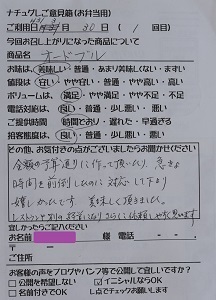 ナチュグレご意見箱(お弁当用)
ご利用日 月 30日 ( 1 回目)
今回お召し上がりになった商品について
商品名 オードブル
お味は 美味しい・普通・あまり美味しくない・まずい
値段は 安い・普通・やや高い・高い
ボリュームは 満足・やや満足・やや不足・不足
電話対応は 良い・普通・少し悪い・悪い
ご提供時間 時間どおり・遅れた・早すぎる
接客態度は 良い・普通・少し悪い・悪い
その他、お気付きの点がございましたらお聞かせください
金額の予算通りに作って頂いたり、急きょ
時間を前倒したのに対応して下さり
嬉しかったです 美味しく頂きました。
宜しかったらご記入ください
お名前 様 電話 - -
ご住所
お客様の声をブログやパンフ等で公開して宜しいですか?
公開を希望しない イニシャルならOK
名前付きでOK レ点でチェックお願いします